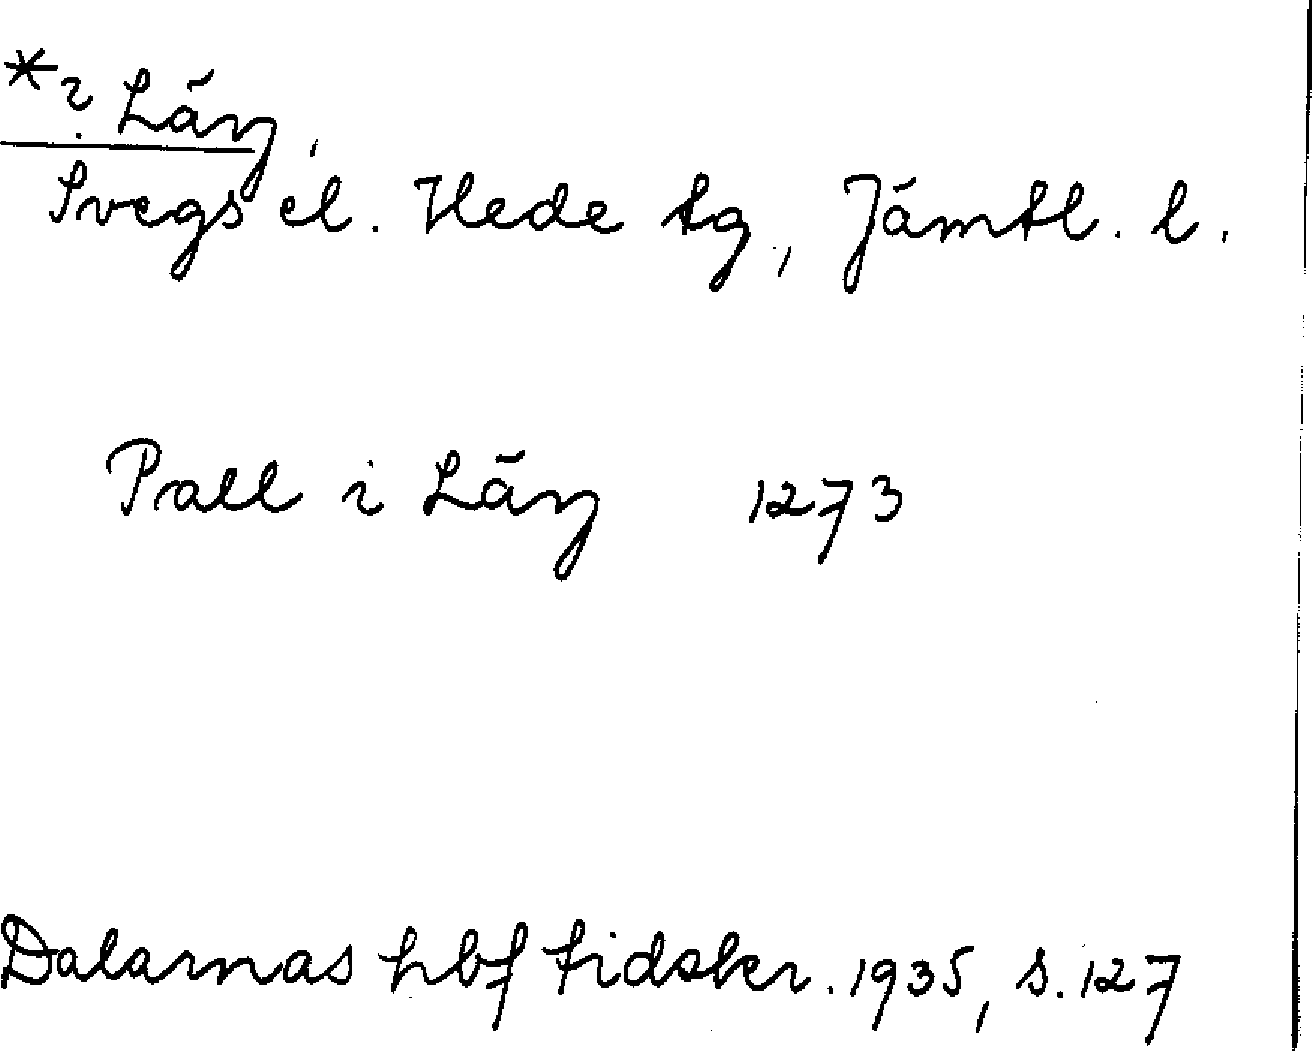 *? Läng
Svegs el. Hede tg, Jämtl. l.
Pall i Läng 1273
Dalarnas hbf tidskr. 1935, s. 127